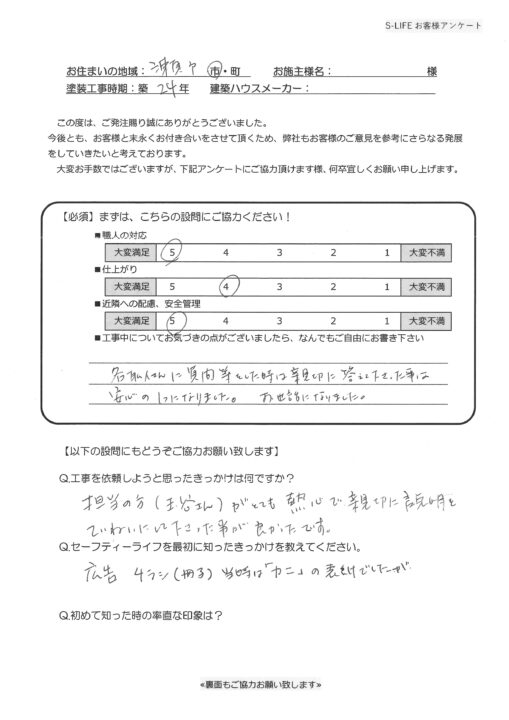 S-LIFE お客様アンケート
お住まいの地域： 市・町 お施主様名： 様
塗装工事時期：築 24 年 建築ハウスメーカー：
この度は、ご発注賜り誠にありがとうございました。
今後とも、お客様と末永くお付き合いをさせて頂くため、弊社もお客様のご意見を参考にさらなる発展
をしていきたいと考えております。
大変お手数ではございますが、下記アンケートにご協力頂けます様、何卒宜しくお願い申し上げます。
【必須】まずは、こちらの設問にご協力ください！
■職人の対応
大変満足 5 4 3 2 1 大変不満
■仕上がり
大変満足 5 4 3 2 1 大変不満
■近隣への配慮、安全管理
大変満足 5 4 3 2 1 大変不満
■工事中についてお気づきの点がございましたら、なんでもご自由にお書き下さい
各職人さんに質問等をした時は親切に答えて下さった事は
安心の1つになりました。 お世話になりました。
【以下の設問にもどうぞご協力お願い致します】
Q.工事を依頼しようと思ったきっかけは何ですか？
担当の方（玉谷さん）がとても熱心で親切に説明を
ていねいにして下さった事が良かったです。
Q.セーフティーライフを最初に知ったきっかけを教えてください。
広告 チラシ（冊子）当時は「カニ」の表紙でしたが
Q.初めて知った時の率直な印象は？
≪裏面もご協力お願い致します≫